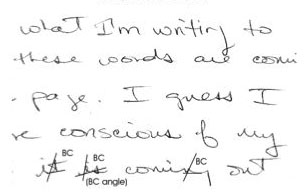 what I'm writing to
these words are comi
page. I guess I
re conscious of my
BC BC BC
it is coming out
(BC angle)